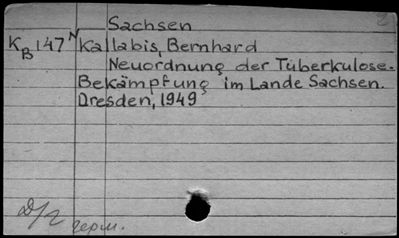 Sachsen
K B 147 N Kallabis, Bernhard
Neuordnung der Tuberkulose-
Bekämpfung im Lande Sachsen.
Dresden, 1949
герм.